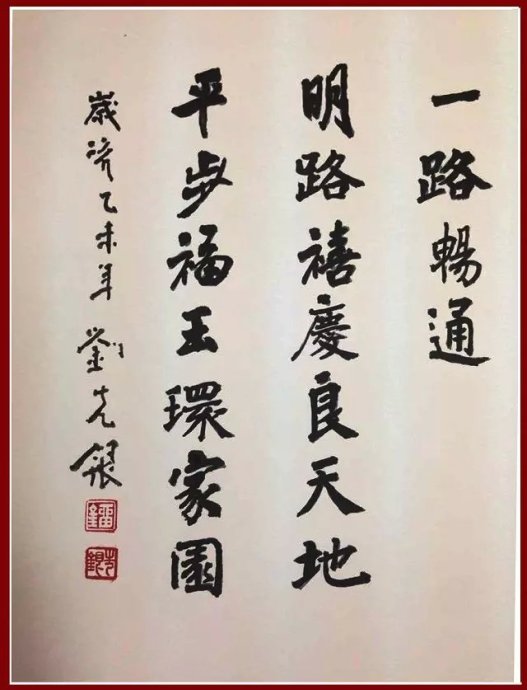 一路暢通
明路禧慶良天地
平步福玉環家園
歲次乙未年 劉先銀